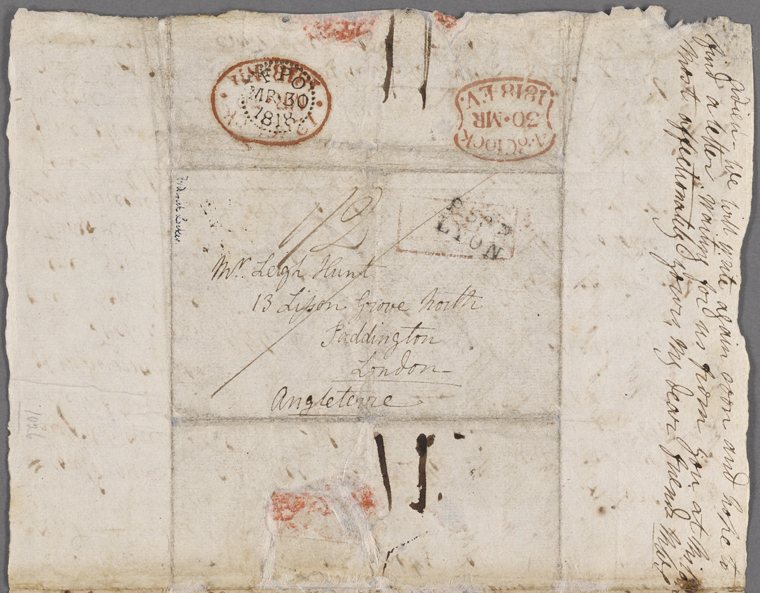 MR 30
1818
A.
o'Clock
30 · MR
1818 · EV.
1/2
LYON
Mr. Leigh Hunt
13 Lisson Grove North
Paddington
London
Angleterre
adieu - We will write again soon and hope to
find a letter waiting for us from you at
Most affectionately yours, my dear friends
1026